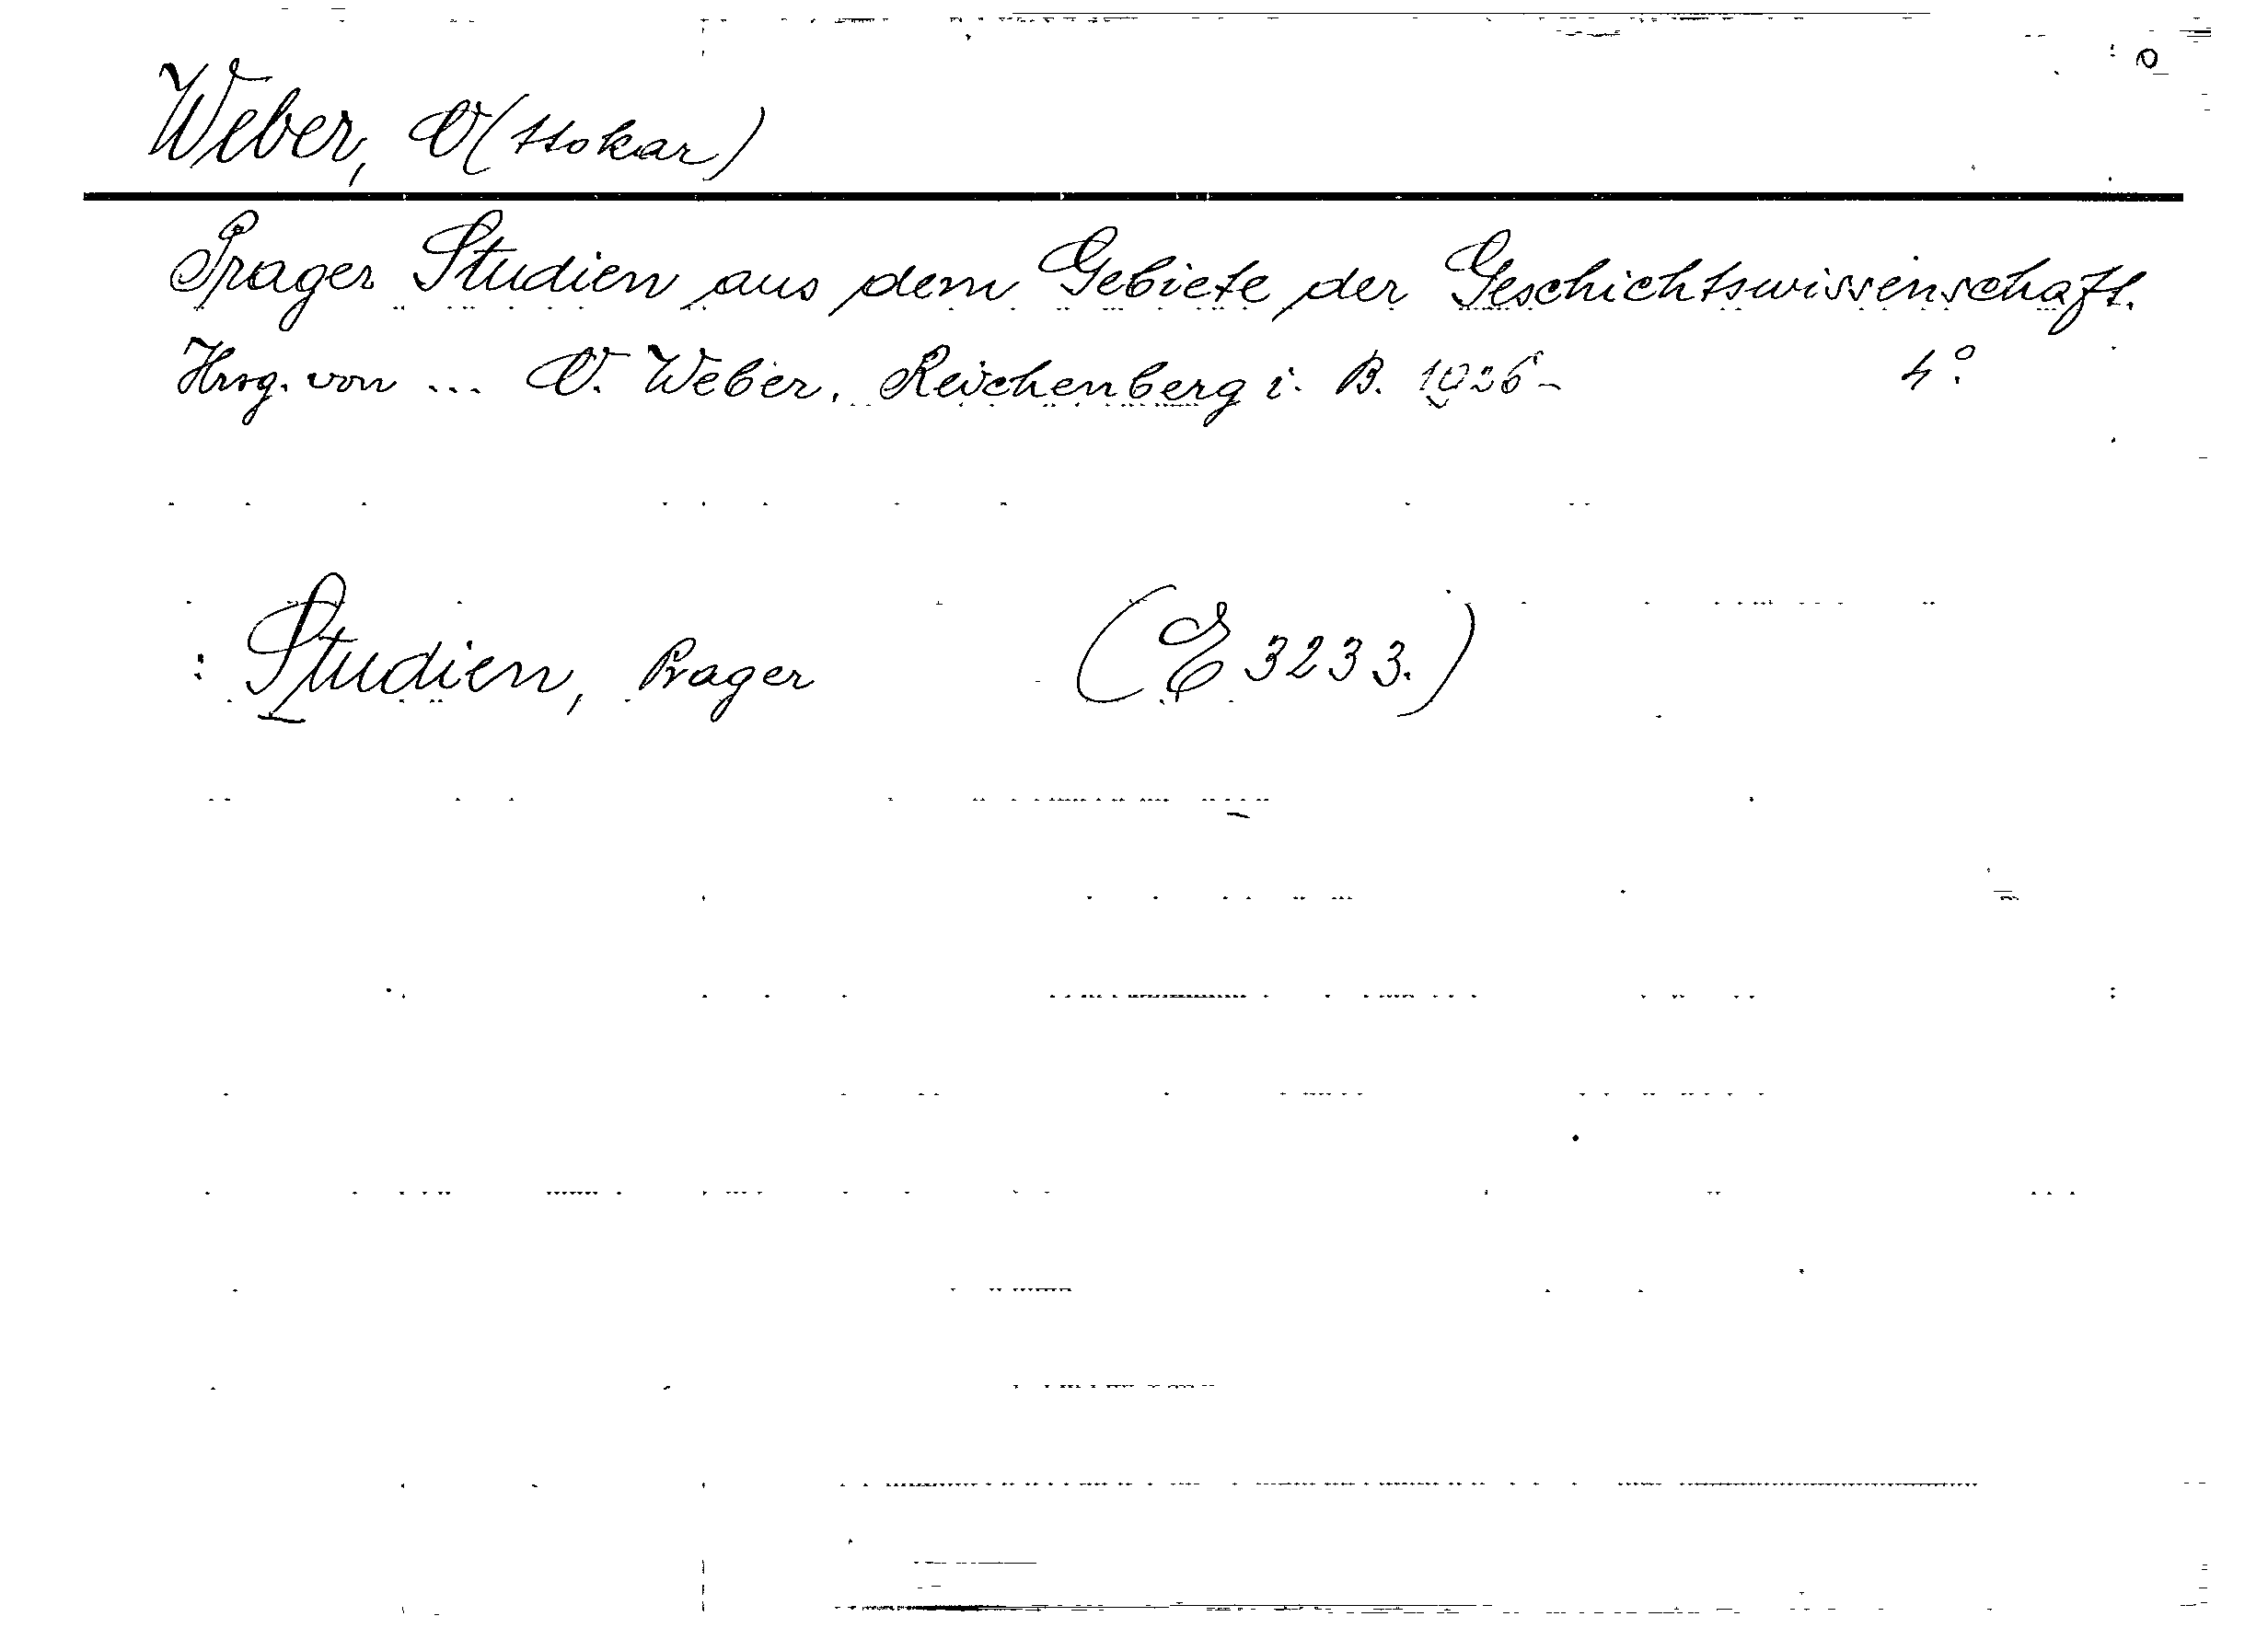 Weber, O(ttokar)
Prager Studien aus dem Gebiete der Geschichtswissenschaft.
Hrsg. von ... O. Weber. Reichenberg i. B. 1926- 4°.
: Studien, Prager (E 3233.)